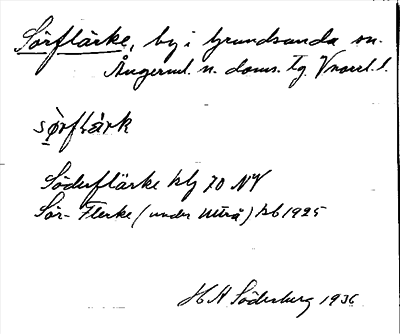 Sörflärke, by i Grundsunda sn.
Ångerml. n. doms. Tg. Vnorrl. l.
sörflärk
Söderflärke klg 70 NV
Sör-Flerke (under Utrå) kb 1925
H A Söderberg 1936